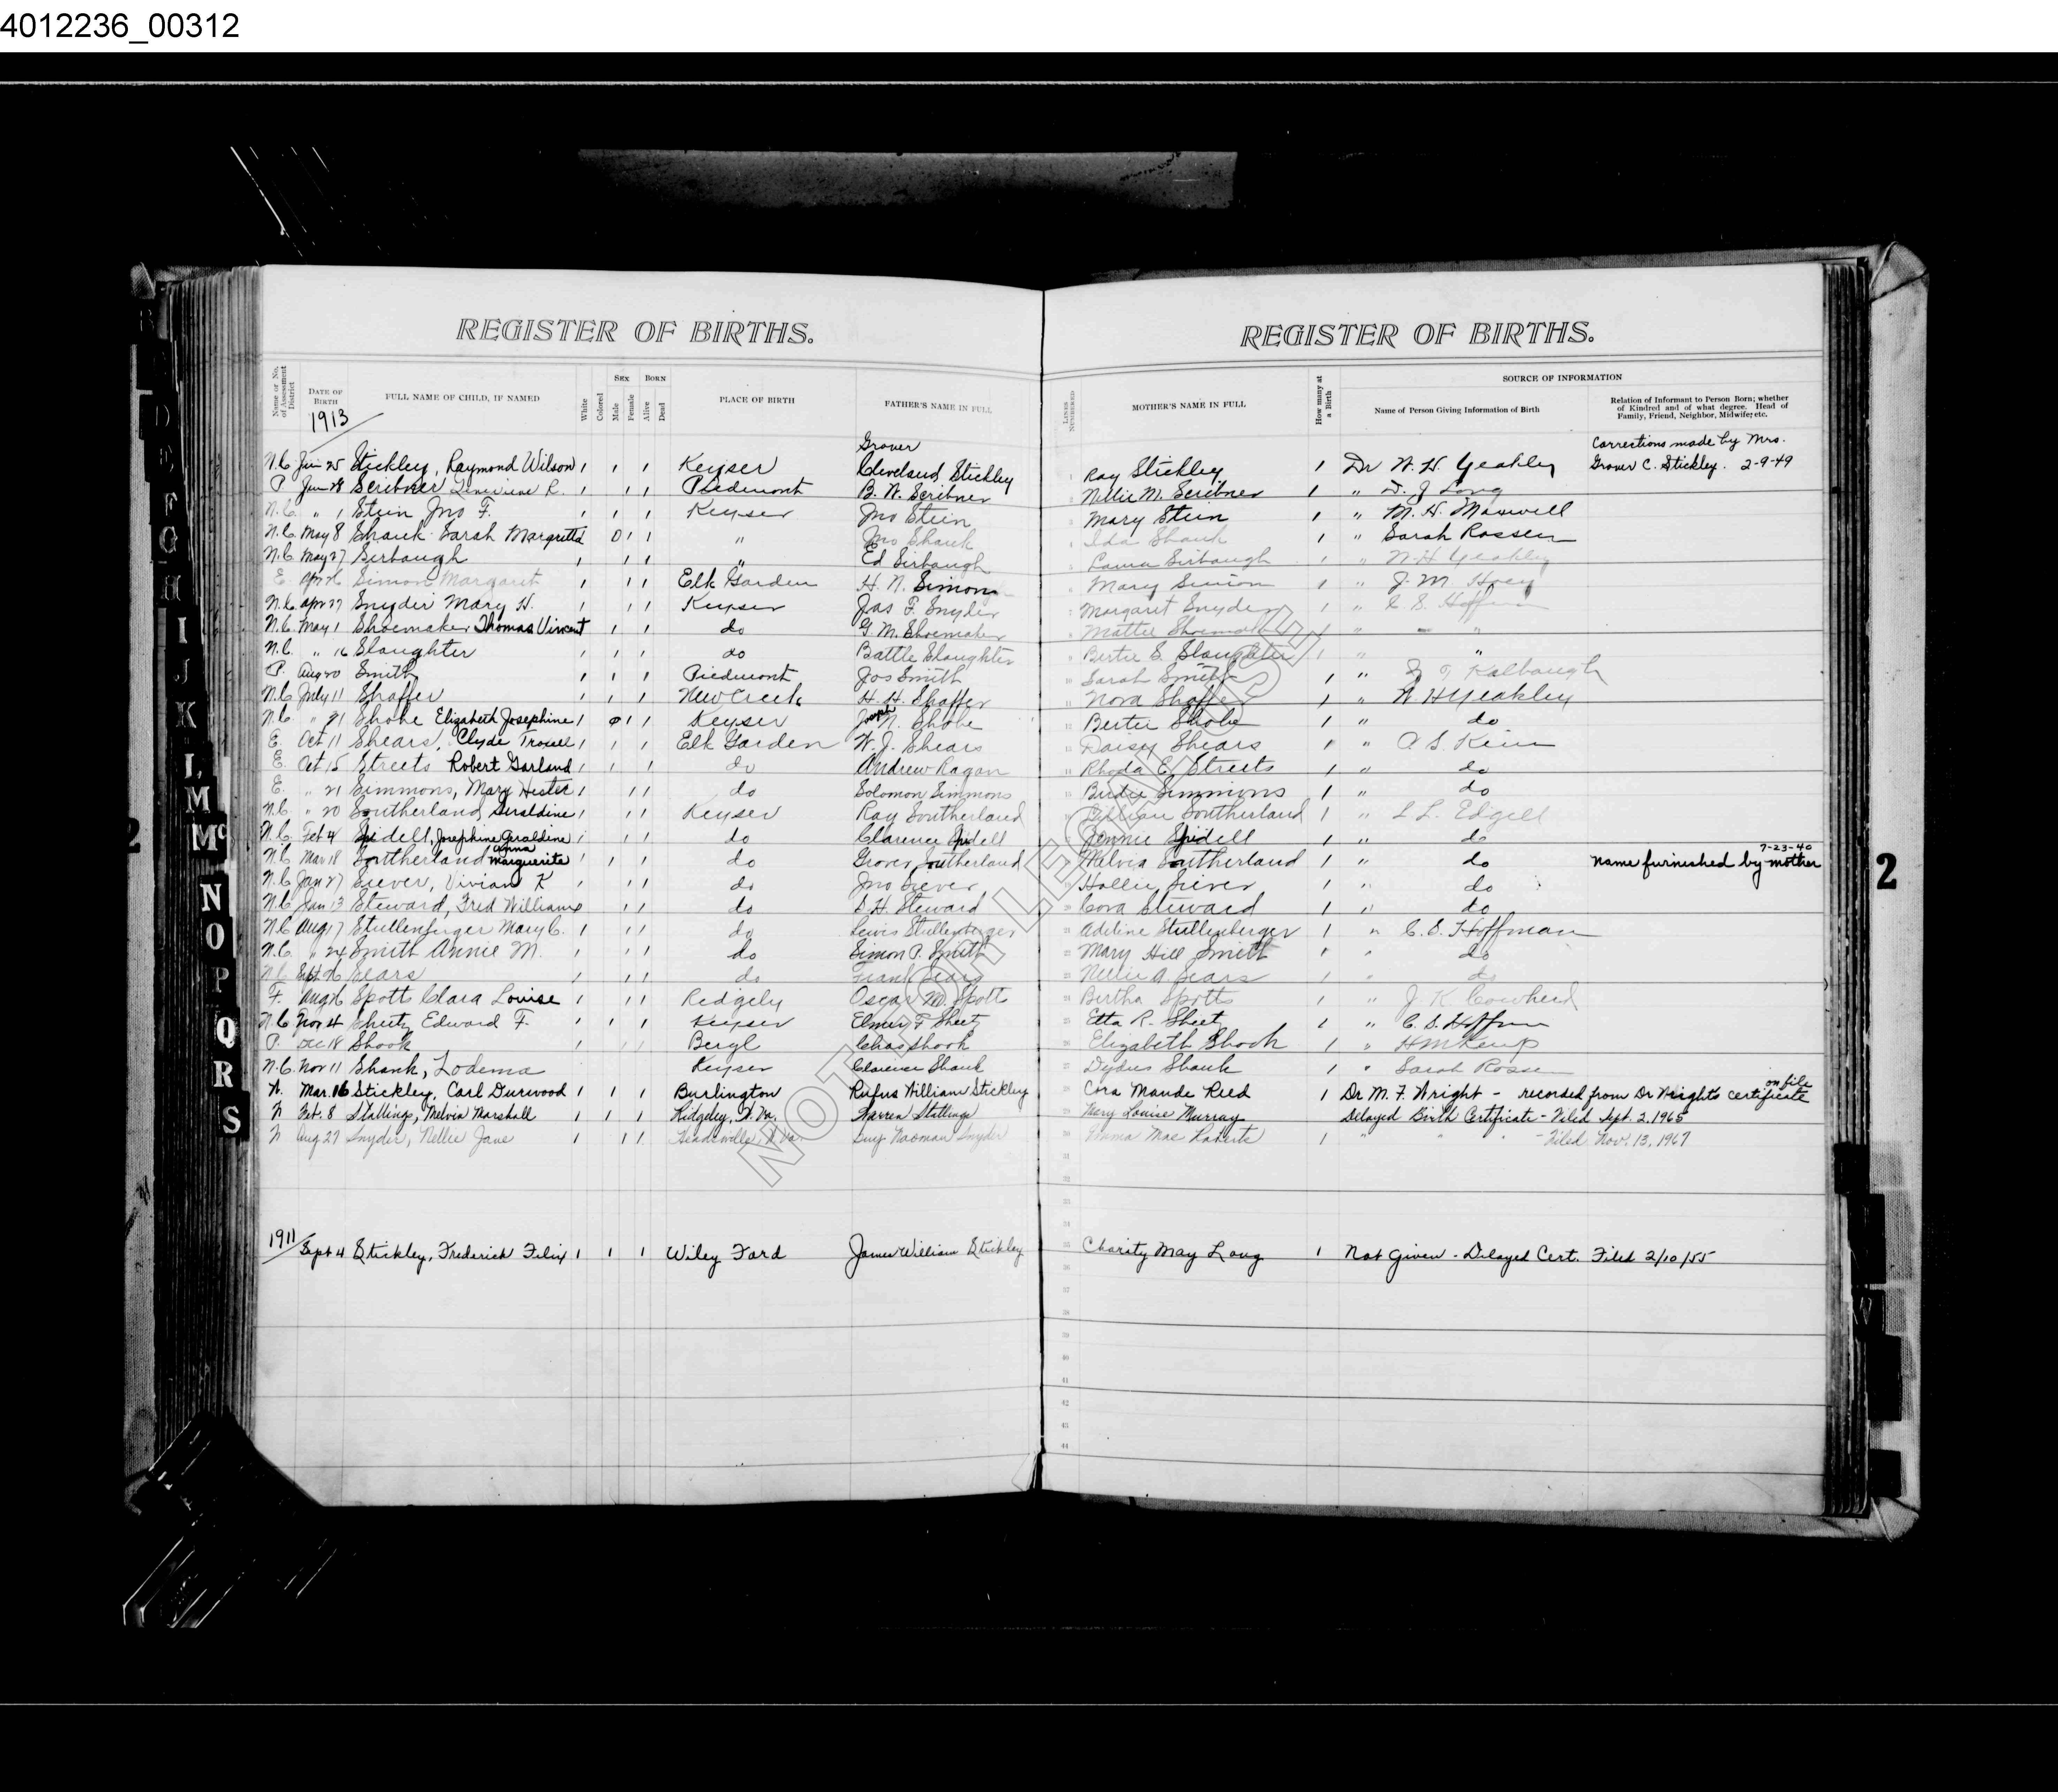 4012236_00312
REGISTER OF BIRTHS.
REGISTER OF BIRTHS.
Name or No. of Assessment District
DATE OF BIRTH
1913
FULL NAME OF CHILD, IF NAMED
White
Colored
SEX
Male
Female
BORN
Alive
Dead
PLACE OF BIRTH
FATHER'S NAME IN FULL
LINES NUMBERED
MOTHER'S NAME IN FULL
How many at a Birth
SOURCE OF INFORMATION
Name of Person Giving Information of Birth
Relation of Informant to Person Born; whether of Kindred and of what degree. Head of Family, Friend, Neighbor, Midwife, etc.
Grover
Corrections made by Mrs.
N.C. Jun 25 Stickley, Raymond Wilson 1 1 1 Keyser Cleveland Stickley 1 Ray Stickley 1 Dr W. H. Yeakley Grover C. Stickley. 2-9-49
P. Jun 28 Scribner R. 1 1 1 Piedmont B. W. Scribner Nellie M. Scribner 1 " D. J. Long
N.C. " 1 Stein Jno F. 1 1 1 Keyser Jno Stein Mary Stein 1 " M. H. Maxwell
N.C. May 8 Shank Sarah Margretta 1 1 " Jno Shank Ida Shank 1 " Sarah Rossen
N.C. May 27 Sirbaugh 1 1 1 " Ed Sirbaugh Laura Sirbaugh 1 " W. H. Yeakley
E. Apr 26 Simon Margaret 1 1 1 Elk Garden H. N. Simon Mary Simon 1 " J. M.
N.C. Apr 27 Snyder Mary H. 1 1 1 Keyser Jas F. Snyder Margaret Snyder 1 " C. S. Hoffman
N.C. May 1 Shoemaker Thomas Vincent 1 1 do G. M. Shoemaker Mattie Shoemaker 1 " "
N.C. " 16 Slaughter 1 1 1 do Battle Slaughter Bertie S. Slaughter 1 " "
P. Aug 20 Smith 1 1 1 Piedmont Jos Smith Sarah Smith 1 " Kalbaugh
N.C. July 11 Shaffer 1 1 1 New Creek H. H. Shaffer Nora Shaffer 1 " W H Yeakley
N.C. " 21 Shobe Elizabeth Josephine 1 1 1 Keyser Joseph N. Shobe Bertie Shobe 1 " do
E. Oct 11 Shears, Clyde Troxell 1 1 1 Elk Garden W. J. Shears Daisy Shears 1 "
E. Oct 15 Streets Robert Garland 1 1 1 do Andrew Ragan Rhoda E. Streets 1 " do
E. " 21 Simmons, Mary Hester 1 1 1 do Solomon Simmons Birdie Simmons 1 " do
N.C. " 20 Southerland, Geraldine 1 1 1 Keyser Ray Southerland Lillian Southerland 1 " L L. Edgell
N.C. Feb 4 Spidell, Josephine Geraldine 1 1 1 do Clarence Spidell Jennie Spidell 1 " do
Anna
7-23-40
N.C. Mar 18 Southerland Marguerite 1 1 1 do Grover Southerland Melvia Southerland 1 " do Name furnished by mother
N.C. Jan 27 Siever, Vivian K 1 1 do Jno Siever Hallie Siever 1 " do
N.C. Jan 13 Steward, Fred William 1 1 do S. H. Steward Cora Steward 1 " do
N.C. Aug 17 Stullenburger Mary C. 1 1 1 do Lewis Stullenberger Adeline Stullenberger 1 " C. S. Hoffman
N.C. " 24 Smith Annie M. 1 1 1 do Simon P. Smith Mary Hill Smith 1 " do
N.C. Sept 26 Sears 1 1 1 do Frank Sears Nellie A. Sears 1 " do
F. Aug 26 Spotts Clara Louise 1 1 1 Ridgely Oscar M. Spotts Bertha Spotts 1 " J. K. Cowherd
N.C. Nov 4 Sheetz Edward F. 1 1 1 Keyser Elmer F Sheetz Etta R. Sheetz 1 " C. S. Hoffman
P. Dec 18 Shook 1 Beryl Chas Shook Elizabeth Shook 1 "
N.C. Nov 11 Shank, Lodema Keyser Clarence Shank Shank 1 " Sarah Rossen
on file
W. Mar. 16 Stickley, Carl Durwood 1 1 1 Burlington Rufus William Stickley Cora Maude Reed 1 Dr M. F. Wright - recorded from Dr Wrights certificate
F Feb. 8 Stallings, Melvin Marshall 1 1 1 Ridgeley, W. Va. Warren Stallings Mary Louise Murray Delayed Birth Certificate - Filed Sept. 2, 1965
Aug 27 Snyder, Nellie Jane 1 1 1 Guy Naoman Snyder Emma Mae Roberts 1 " " " - Filed Nov. 13, 1967
1911
Sept 4 Stickley, Frederick Felix 1 1 1 Wiley Ford James William Stickley Charity May Long 1 Not Given - Delayed Cert. Filed 2/10/55
NOT FOR LEGAL USE
D
E
F
G
H
I
J
K
L
M
Mc
N
O
P
Q
R
S
2
2